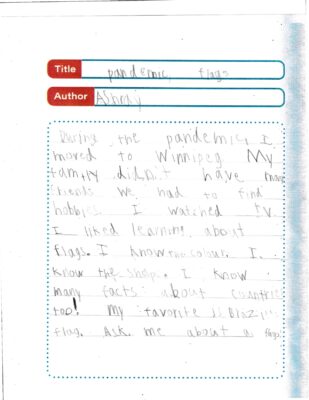 Title pandemic flags
Author Ashray
During the pandemic, I
moved to Winnipeg My
family didn't have many
friends we had to find
hobbies I watched TV
I liked learning about
flags. I know the colours. I
know the shape. I know
many facts about countrie
too! My favorite is Brazil
flag. Ask me about a flag